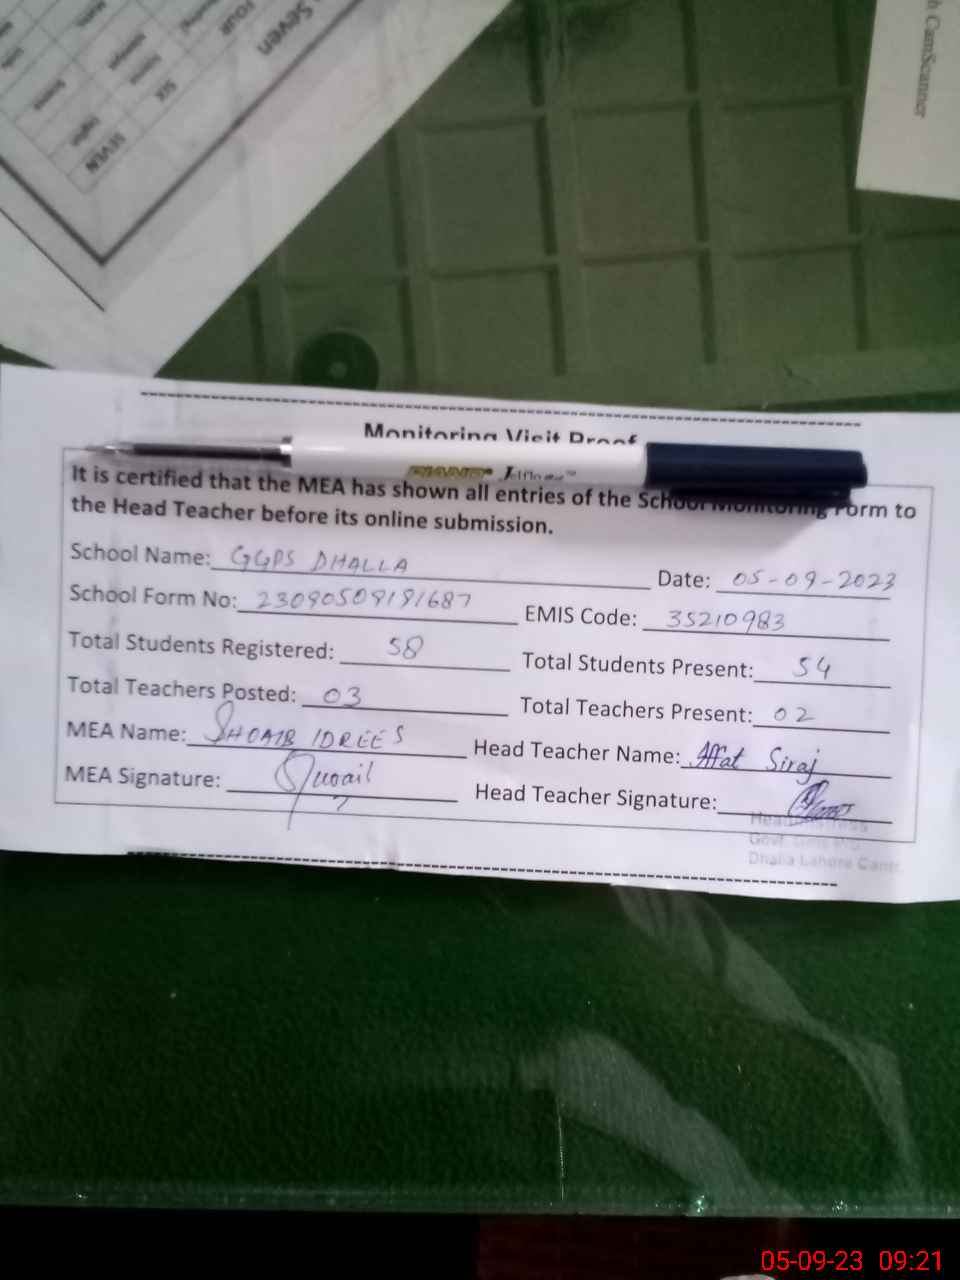 h CamScanner
Seven
FOUR
SIX
SEVEN
Monitoring Visit Proof
PIANO
It is certified that the MEA has shown all entries of the School Monitoring Form to
the Head Teacher before its online submission.
School Name: GGPS DHALLA Date: 05-09-2023
School Form No: EMIS Code: 35210983
Total Students Registered: 58 Total Students Present: 54
Total Teachers Posted: 03 Total Teachers Present: 02
MEA Name: SHOAIB IDREES Head Teacher Name: Affat Siraj
MEA Signature: Head Teacher Signature:
Headmistress
Dhalla Lahore Cantt
05-09-23 09:21